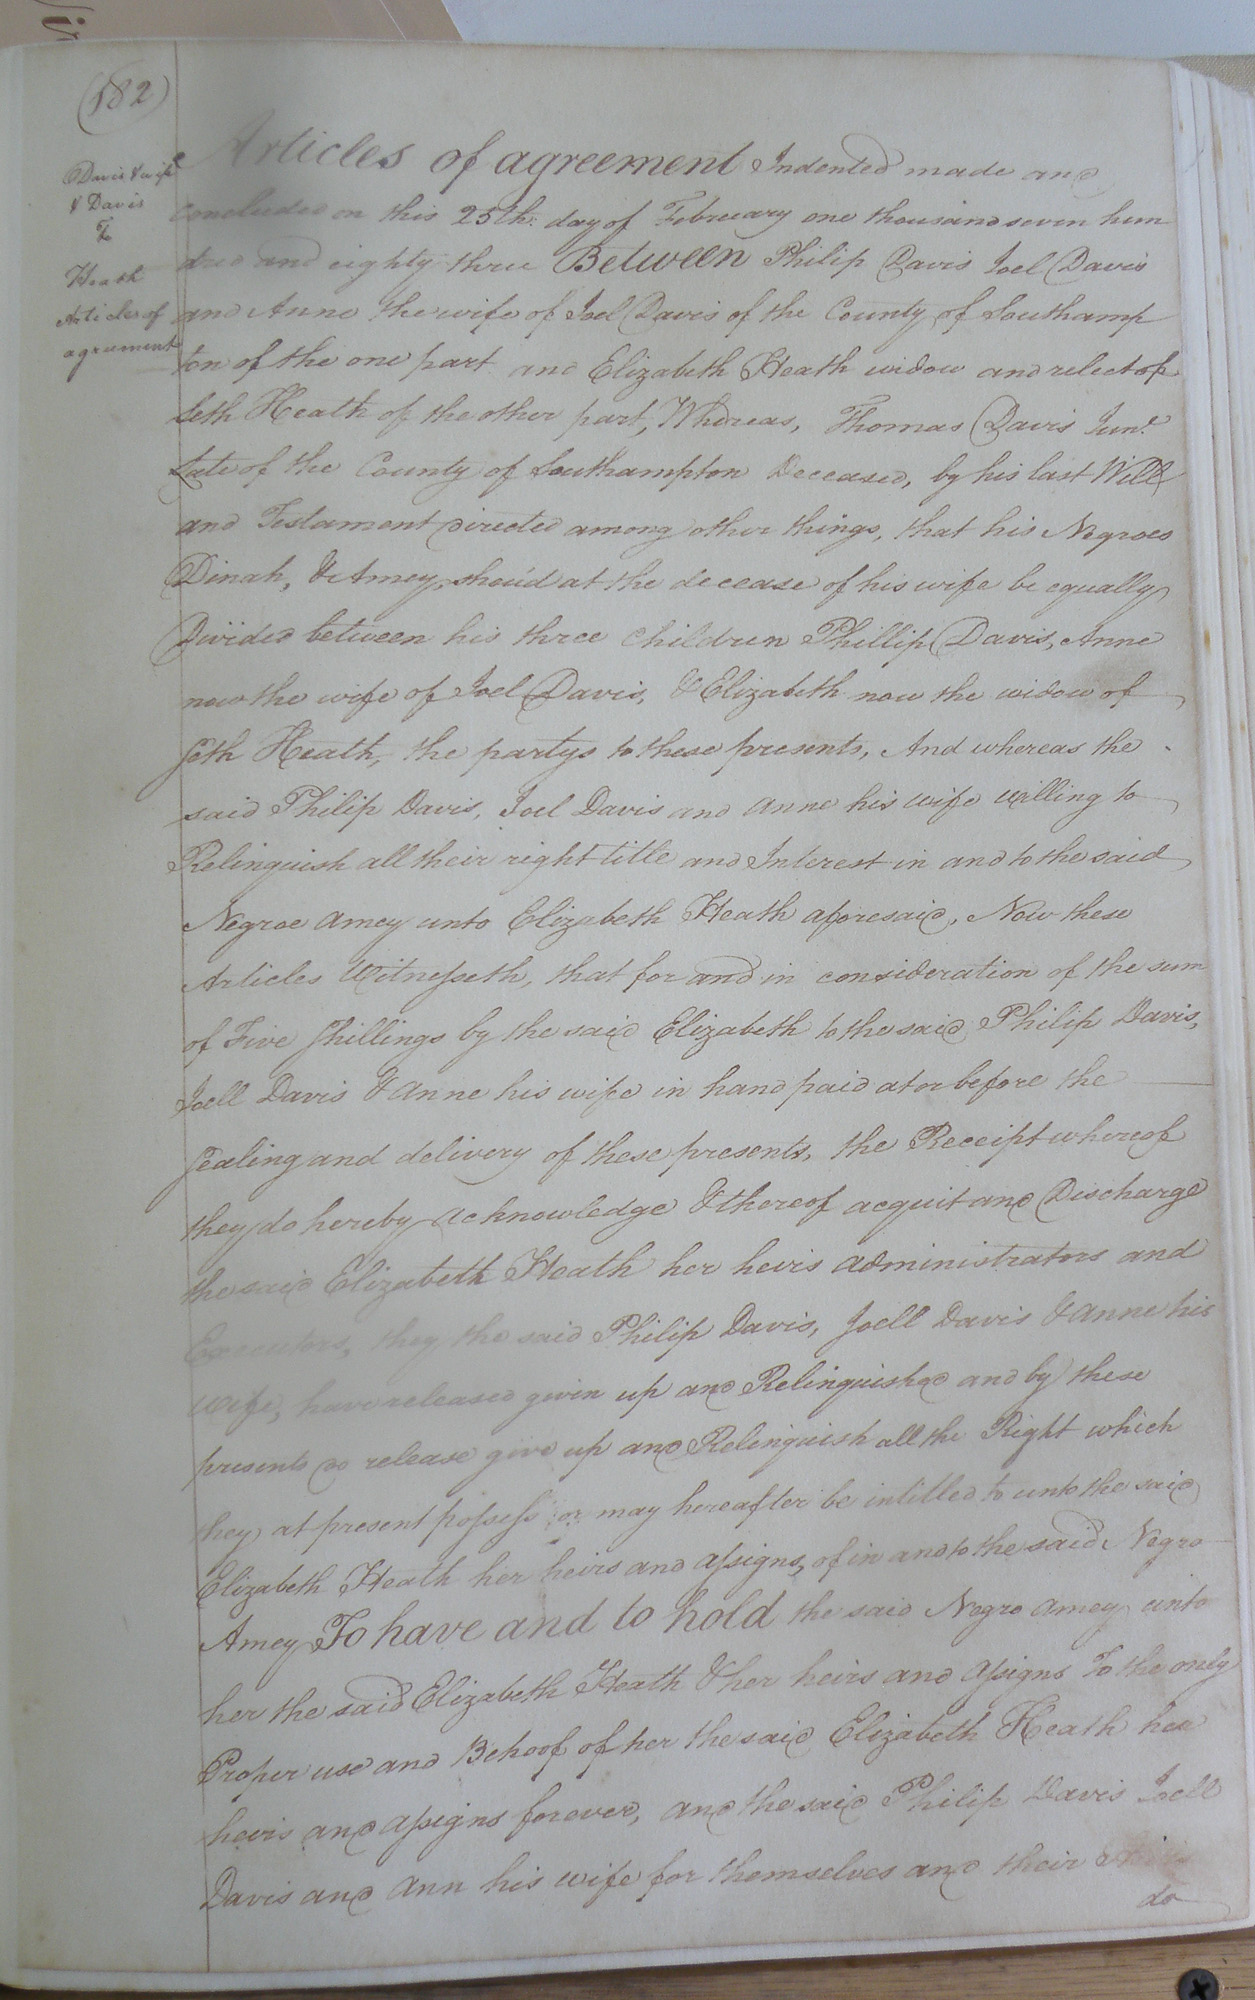 (182)
Davis & wife
& Davis
To
Heath
Articles of
agreement
Articles of agreement Indented made and
concluded on this 25th: day of February one thousand seven hun
dred and eighty three Between Philip Davis Joel Davis
and Anne the wife of Joel Davis of the County of Southamp
ton of the one part and Elizabeth Heath widow and relect of
Seth Heath of the other part, Whereas, Thomas Davis Junr.
Late of the County of Southampton Deceased, by his last Will
and Testament directed among other things, that his Negroes
Dinah, & Amey, shou'd at the decease of his wife be equally
Divided between his three Children Phillip Davis, Anne
now the wife of Joel Davis, & Elizabeth now the widow of
Seth Heath, the partys to these presents, And whereas the
said Philip Davis, Joel Davis and Anne his wife willing to
Relinquish all their right title and Interest in and to the said
Negroe Amey unto Elizabeth Heath aforesaid, Now these
Articles Witnesseth, that for and in consideration of the sum
of Five Shillings by the said Elizabeth to the said Philip Davis,
Joell Davis & Anne his wife in hand paid at or before the
Sealing and delivery of these presents, the Receipt whereof
they do hereby acknowledge & thereof acquit and Discharge
the said Elizabeth Heath her heirs administrators and
Executors, they the said Philip Davis, Joell Davis & Anne his
wife, have released given up and Relinquished and by these
presents do release give up and Relinquish all the Right which
they at present possess or may hereafter be intitled to unto the said
Elizabeth Heath her heirs and assigns, of in and to the said Negro
Amey To have and to hold the said Negro Amey unto
her the said Elizabeth Heath & her heirs and assigns To the only
Proper use and Behoof of her the said Elizabeth Heath her
heirs and assigns forever, and the said Philip Davis Joell
Davis and Ann his wife for themselves and their
do